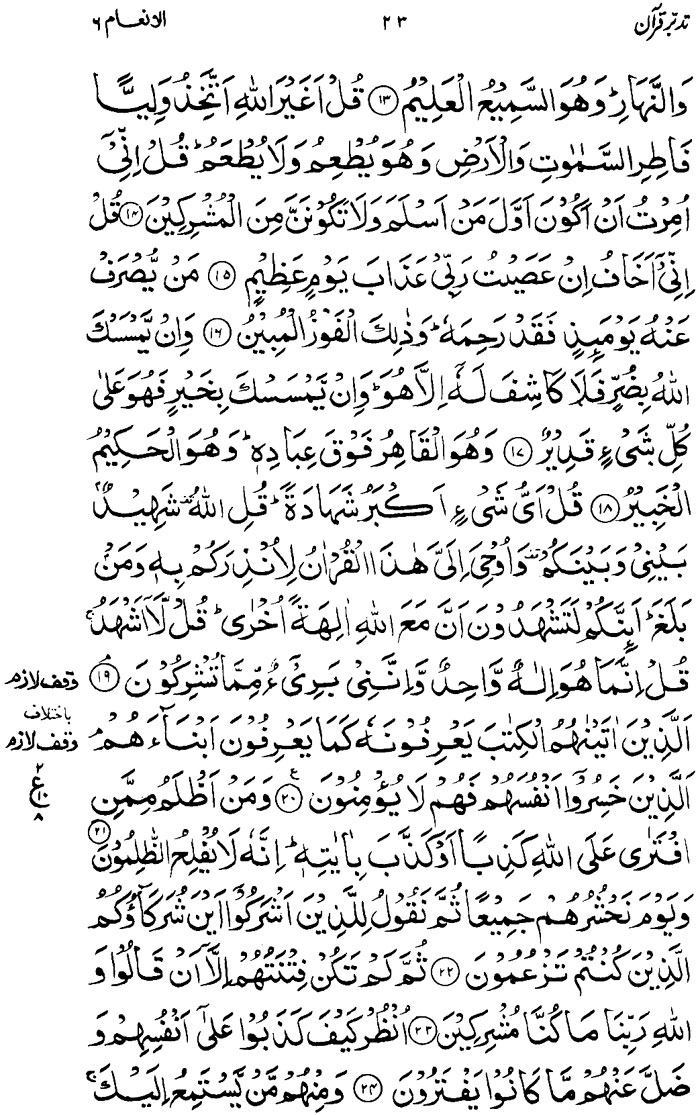 تدبّرِ قرآن ۲۳ الانعام ۶
وَالنَّهَارِ ؕ وَهُوَ السَّمِيْعُ الْعَلِيْمُ ﴿۱۳﴾ قُلْ اَغَيْرَ اللّٰهِ اَتَّخِذُ وَلِيًّا
فَاطِرِ السَّمٰوٰتِ وَالْاَرْضِ وَهُوَ يُطْعِمُ وَلَا يُطْعَمُ ؕ قُلْ اِنِّيْۤ
اُمِرْتُ اَنْ اَكُوْنَ اَوَّلَ مَنْ اَسْلَمَ وَلَا تَكُوْنَنَّ مِنَ الْمُشْرِكِيْنَ ﴿۱۴﴾ قُلْ
اِنِّيْۤ اَخَافُ اِنْ عَصَيْتُ رَبِّيْ عَذَابَ يَوْمٍ عَظِيْمٍ ﴿۱۵﴾ مَنْ يُّصْرَفْ
عَنْهُ يَوْمَئِذٍ فَقَدْ رَحِمَهٗ ؕ وَذٰلِكَ الْفَوْزُ الْمُبِيْنُ ﴿۱۶﴾ وَاِنْ يَّمْسَسْكَ
اللّٰهُ بِضُرٍّ فَلَا كَاشِفَ لَهٗۤ اِلَّا هُوَ ؕ وَاِنْ يَّمْسَسْكَ بِخَيْرٍ فَهُوَ عَلٰى
كُلِّ شَيْءٍ قَدِيْرٌ ﴿۱۷﴾ وَهُوَ الْقَاهِرُ فَوْقَ عِبَادِهٖ ؕ وَهُوَ الْحَكِيْمُ
الْخَبِيْرُ ﴿۱۸﴾ قُلْ اَيُّ شَيْءٍ اَكْبَرُ شَهَادَةً ؕ قُلِ اللّٰهُ ۙ شَهِيْدٌۢ
بَيْنِيْ وَبَيْنَكُمْ ۟ وَاُوْحِيَ اِلَيَّ هٰذَا الْقُرْاٰنُ لِاُنْذِرَكُمْ بِهٖ وَمَنْۢ
بَلَغَ ؕ اَئِنَّكُمْ لَتَشْهَدُوْنَ اَنَّ مَعَ اللّٰهِ اٰلِهَةً اُخْرٰى ؕ قُلْ لَّاۤ اَشْهَدُ ۚ
قُلْ اِنَّمَا هُوَ اِلٰهٌ وَّاحِدٌ وَّاِنَّنِيْ بَرِيْءٌ مِّمَّا تُشْرِكُوْنَ ﴿۱۹﴾ۘ وقف لازم
باختلاف
اَلَّذِيْنَ اٰتَيْنٰهُمُ الْكِتٰبَ يَعْرِفُوْنَهٗ كَمَا يَعْرِفُوْنَ اَبْنَآءَهُمْ ۘ وقف لازم
اَلَّذِيْنَ خَسِرُوْۤا اَنْفُسَهُمْ فَهُمْ لَا يُؤْمِنُوْنَ ﴿۲۰﴾ وَمَنْ اَظْلَمُ مِمَّنِ ۲ ع ۱۰ ۸
افْتَرٰى عَلَى اللّٰهِ كَذِبًا اَوْ كَذَّبَ بِاٰيٰتِهٖ ؕ اِنَّهٗ لَا يُفْلِحُ الظّٰلِمُوْنَ ﴿۲۱﴾
وَيَوْمَ نَحْشُرُهُمْ جَمِيْعًا ثُمَّ نَقُوْلُ لِلَّذِيْنَ اَشْرَكُوْۤا اَيْنَ شُرَكَآؤُكُمُ
الَّذِيْنَ كُنْتُمْ تَزْعُمُوْنَ ﴿۲۲﴾ ثُمَّ لَمْ تَكُنْ فِتْنَتُهُمْ اِلَّاۤ اَنْ قَالُوْا وَ
اللّٰهِ رَبِّنَا مَا كُنَّا مُشْرِكِيْنَ ﴿۲۳﴾ اُنْظُرْ كَيْفَ كَذَبُوْا عَلٰۤى اَنْفُسِهِمْ وَ
ضَلَّ عَنْهُمْ مَّا كَانُوْا يَفْتَرُوْنَ ﴿۲۴﴾ وَمِنْهُمْ مَّنْ يَّسْتَمِعُ اِلَيْكَ ۚ